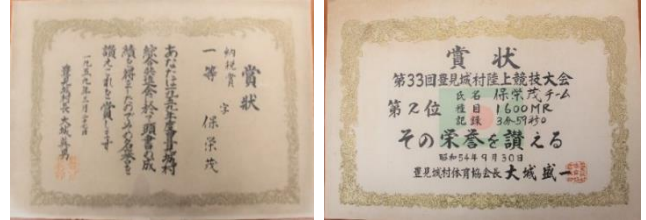 賞状
納税賞
一等 字 保栄茂
あなたは一九五九年度豊見城村
綜合共進会に於て頭書の成
績を得ましたのでその名誉を
讃えこれを賞します
豊見城村長 大城
賞状
第33回豊見城村陸上競技大会
第2位
氏名 保栄茂チーム
種目 1600MR
記録 3分59秒0
その栄誉を讃える
昭和54年9月30日
豊見城村体育協会長 大城盛一